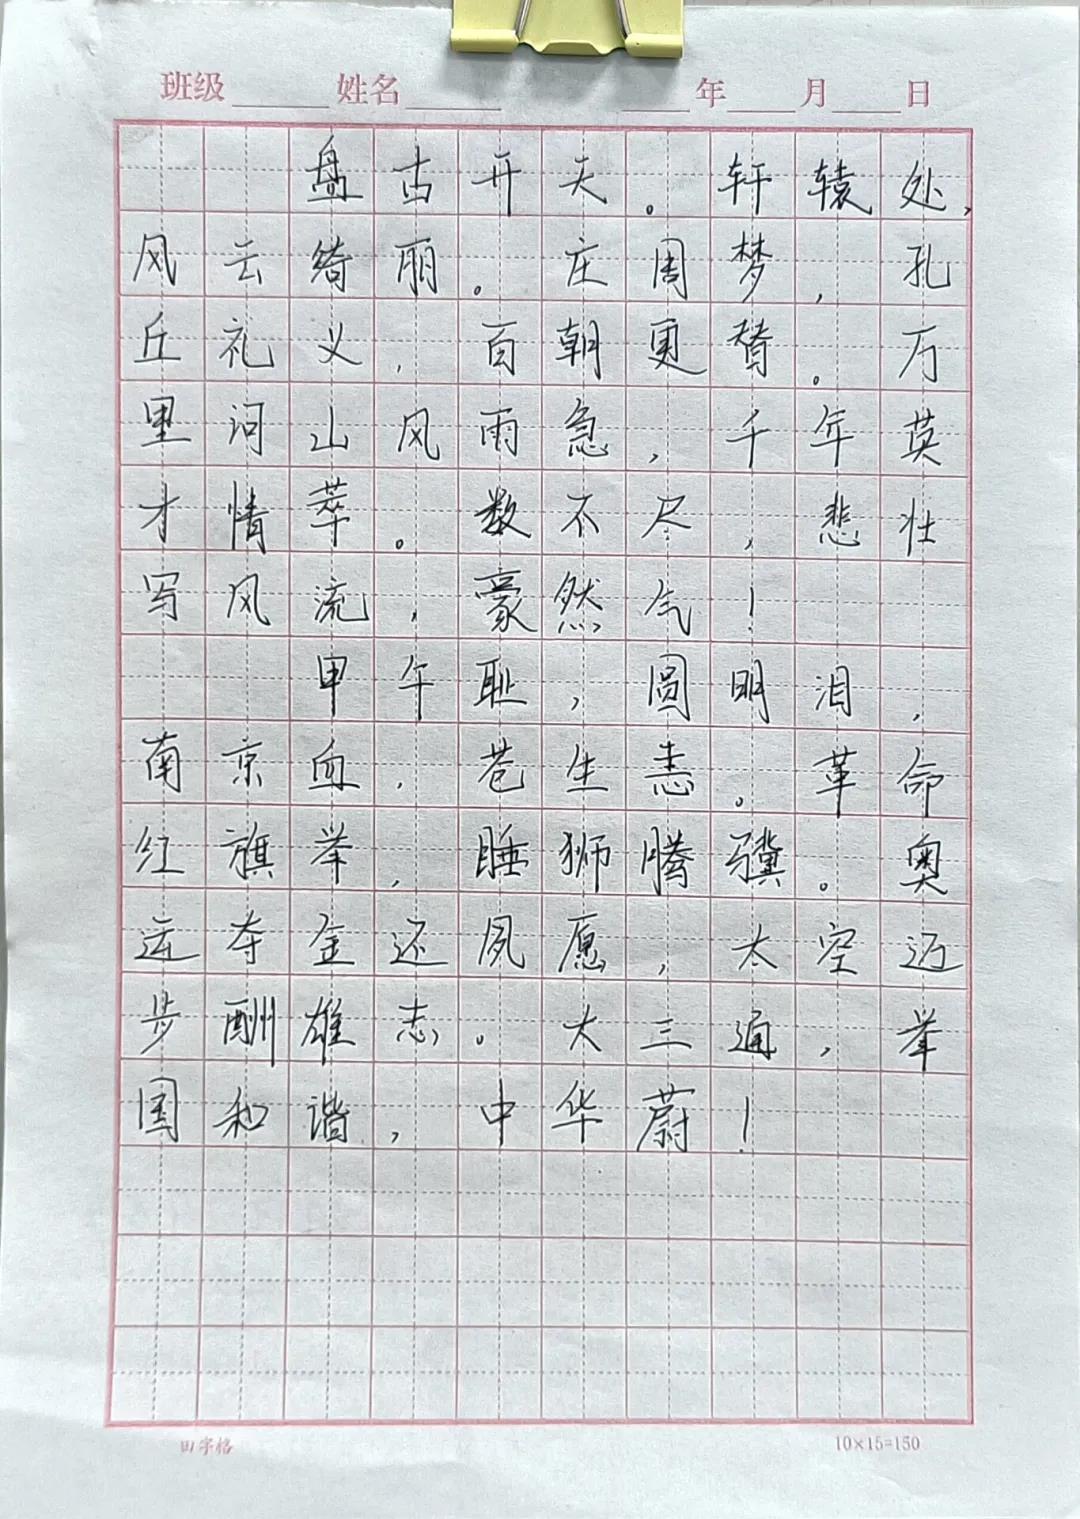 班级 姓名 年 月 日
盘古开天。轩辕处,
风云绮丽。庄周梦,孔
丘礼义,百朝更替。万
里河山风雨急,千年英
才情萃。数不尽,悲壮
写风流,豪然气!
甲午耻,圆明泪,
南京血,苍生恚。革命
红旗举,睡狮腾骥。奥
运夺金还夙愿,太空迈
步酬雄志。大三通,举
国和谐,中华蔚!
田字格 10×15=150